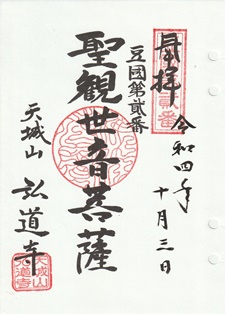 奉拝
令和四年
十月三日
豆國第貳番
聖観世音菩薩
天城山
弘道寺
天城山
弘道寺